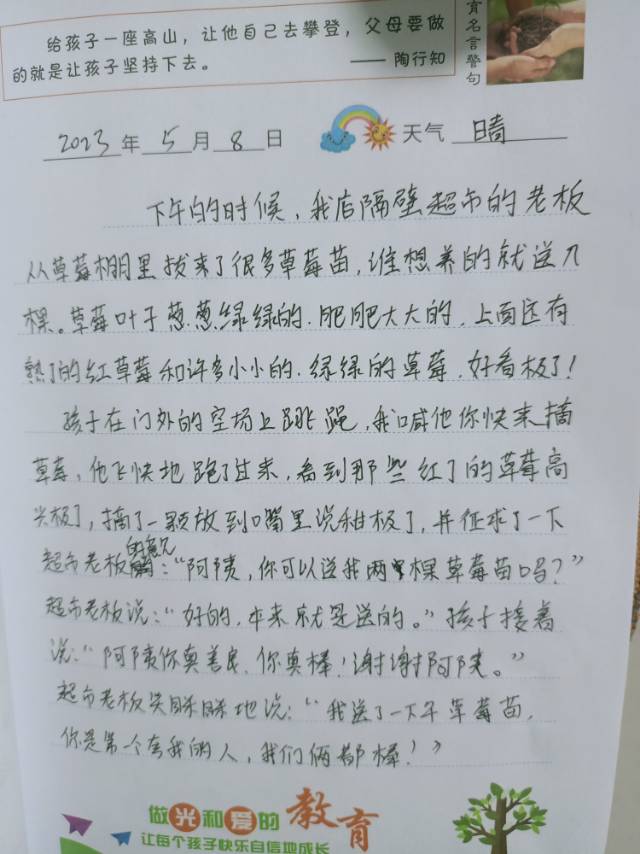 给孩子一座高山，让他自己去攀登，父母要做
的就是让孩子坚持下去。
—— 陶行知
育名言警句
2023年5月8日 天气 晴
下午的时候，我店隔壁超市的老板
从草莓棚里拔来了很多草莓苗，谁想养的就送几
棵。草莓叶子葱葱绿绿的．肥肥大大的，上面还有
熟了的红草莓和许多小小的．绿绿的草莓，好看极了！
孩子在门外的空场上跳绳，我喊他你快来摘
草莓，他飞快地跑了过来，看到那些红了的草莓高
兴极了，摘了一颗放到嘴里说甜极了，并征求了一下
超市老板的意见：“阿姨，你可以送我两棵草莓苗吗？”
超市老板说：“好的，本来就是送的。”孩子接着
说：“阿姨你真善良，你真棒！谢谢阿姨。”
超市老板笑眯眯地说：“我送了一下午草莓苗，
你是第一个夸我的人，我们俩都棒！”
做光和爱的教育
让每个孩子快乐自信地成长